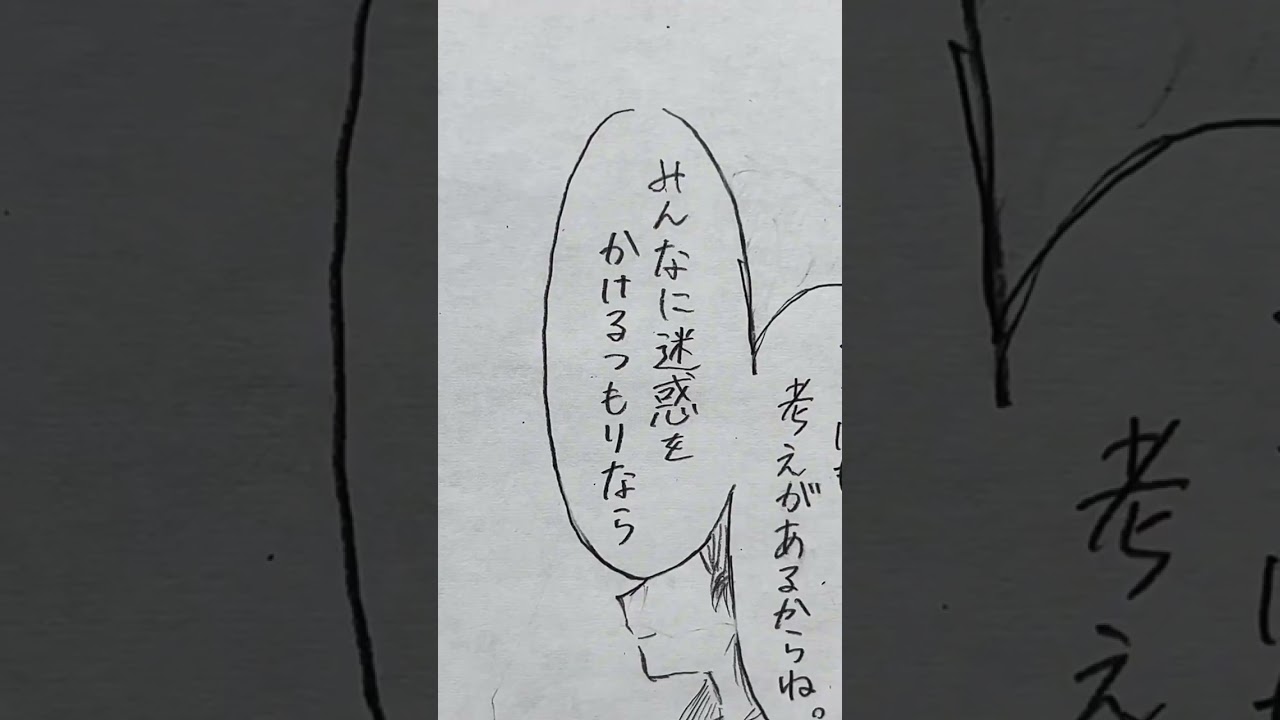 みんなに迷惑を
かけるつもりなら
考えがあるからね。